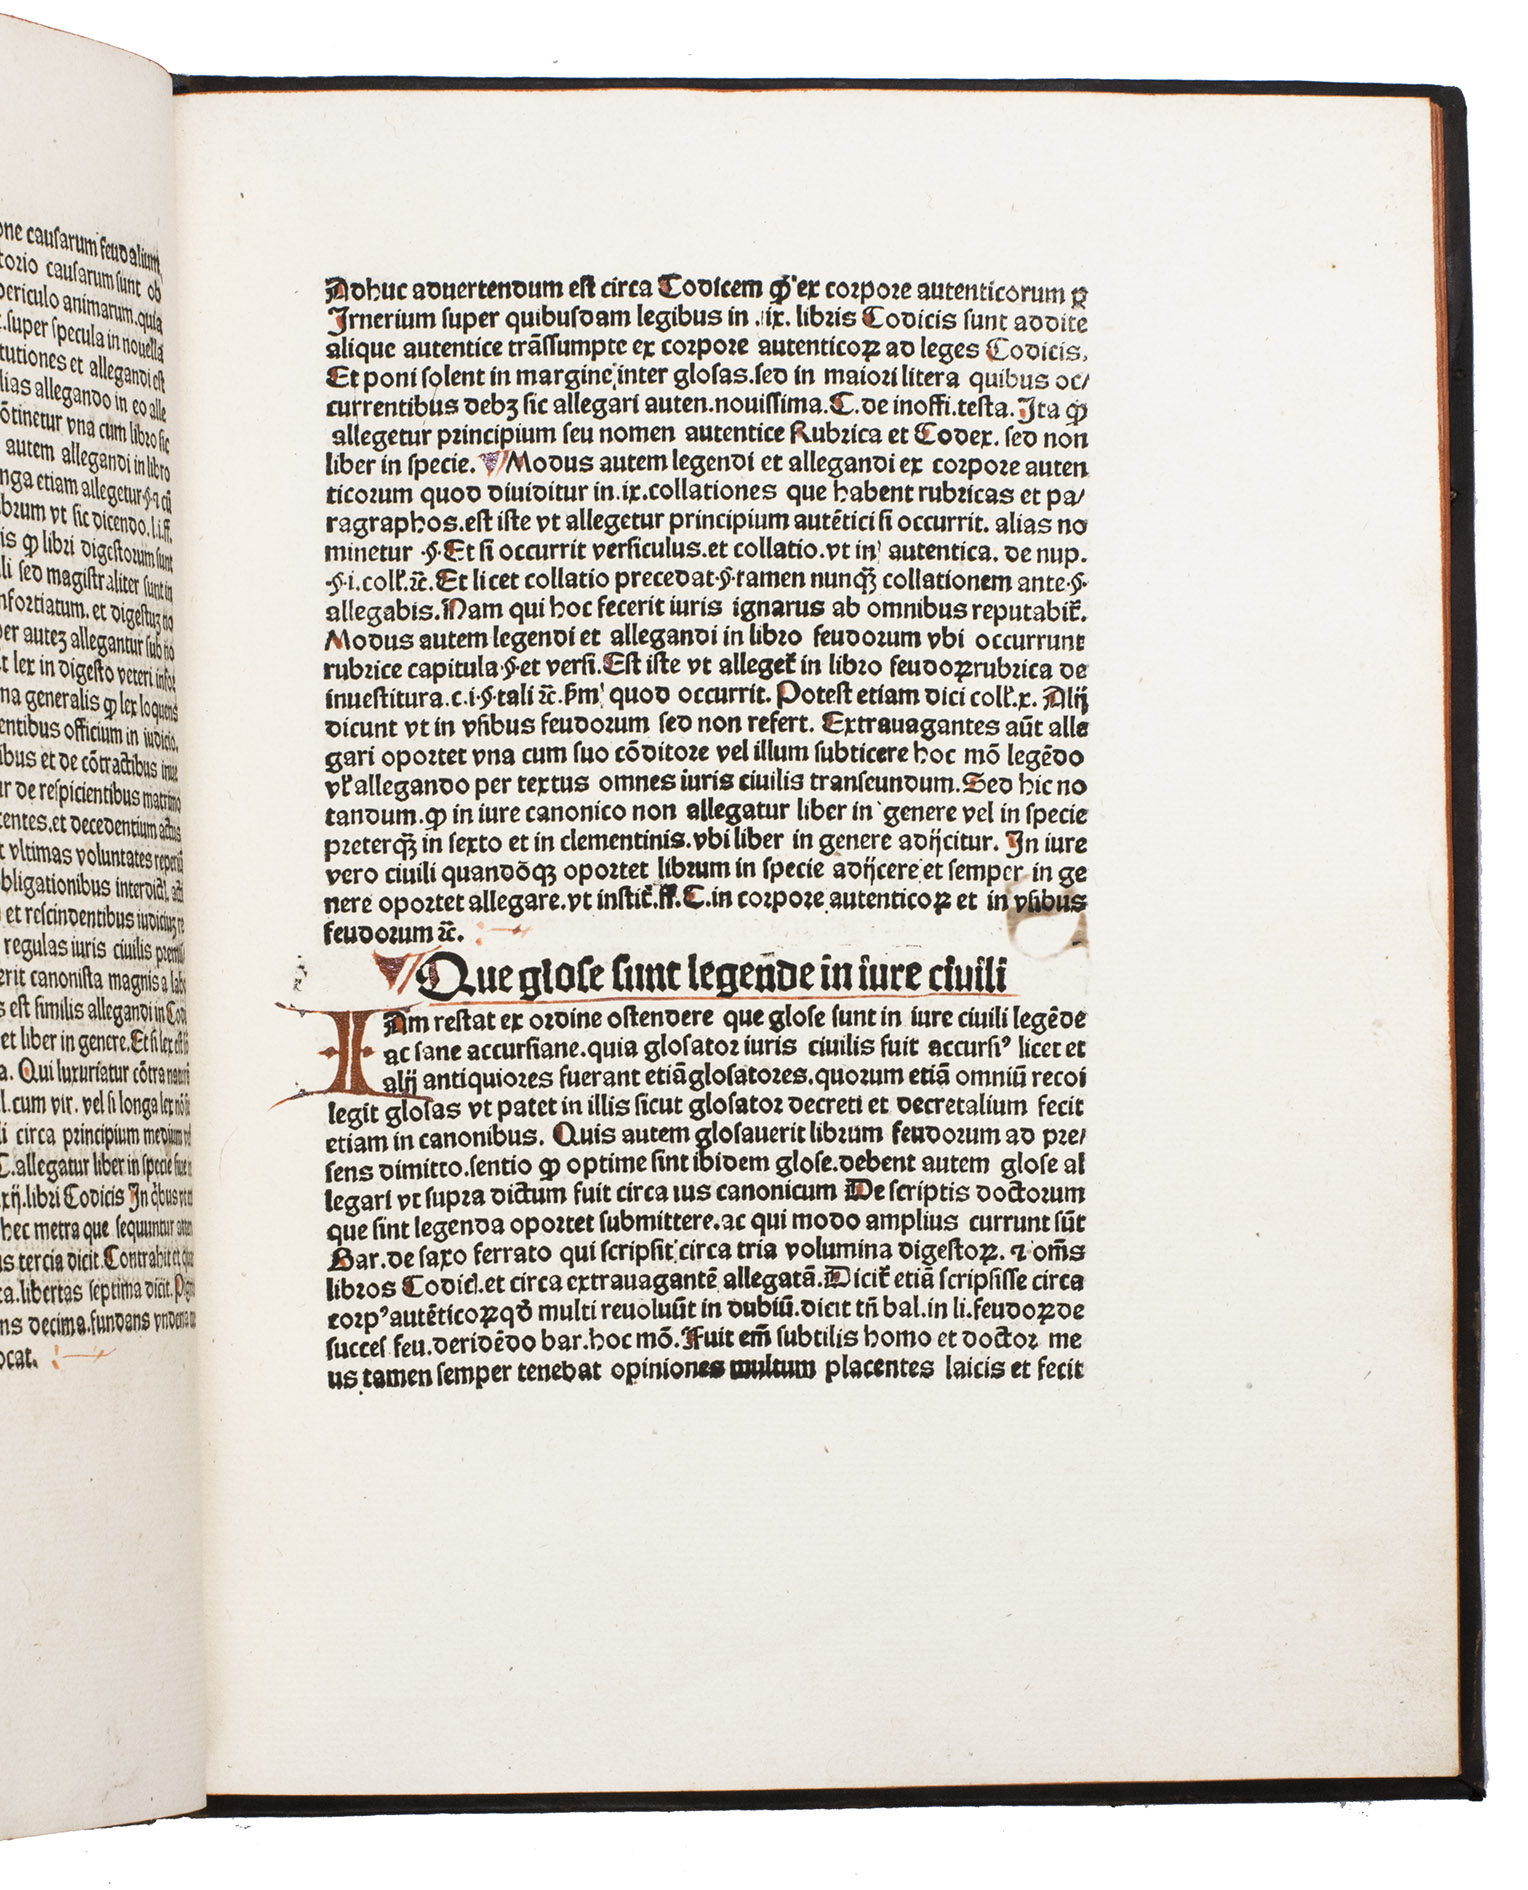 one causarum feudalium
torio causarum sunt ob
periculo animarum. quia
.super specula in nouella
tutiones et allegandi est
lias allegando in eo alle
õtinetur vna cum libro sic
autem allegandi in libro
nga etiam allegetur.§.⁊ cũ
brum vt sic dicendo.l.i.ff.
is ꝙ libri digestorum sunt
li sed magistraliter sunt in
nfortiatum. et digestuꝫ no
er auteꝫ allegantur sub no
t lex in digesto veteri infor
na generalis ꝙ lex loquens
entibus officium in iudicio.
ibus et de cõtractibus inue
ur de respicientibus matrimo
centes.et decedentium actus
t vltimas voluntates
bligationibus interdict.
et rescindentibus iudiciuꝫ
regulas iuris ciuilis
erit canonista magnis a
s est similis allegandi in
et liber in genere. Et si lex
a. Qui luxuriatur cõtra
l.cum vir. vel si longa lex nõ
i circa principium medium
C.allegatur liber in specie
xij.libri Codicis In
hec metra que sequuntur
us tercia dicit. Contrahit et
ca.libertas septima dicit.
ns decima.fundans
ocat.
Adhuc aduertendum est circa Codicem ꝙ ex corpore autenticorum ꝑ
Irnerium super quibusdam legibus in .ix. libris Codicis sunt addite
alique autentice trãssumpte ex corpore autenticoꝝ ad leges Codicis,
Et poni solent in margine inter glosas.sed in maiori litera quibus oc/
currentibus debꝫ sic allegari auten.nouissima.C. de inoffi.testa. Ita ꝙ
allegetur principium seu nomen autentice Rubrica et Codex. sed non
liber in specie. Modus autem legendi et allegandi ex corpore auten
ticorum quod diuiditur in.ix.collationes que habent rubricas et pa/
ragraphos.est iste vt allegetur principium autẽtici si occurrit. alias no
minetur .§. Et si occurrit versiculus.et collatio.vt in autentica. de nup.
.§.i.coll̃.ꝛc̃. Et licet collatio precedat.§.tamen nunqꝫ collationem ante.§.
allegabis. Nam qui hoc fecerit iuris ignarus ab omnibus reputabit̃.
Modus autem legendi et allegandi in libro feudorum vbi occurrunt
rubrice capitula.§.et versi. Est iste vt alleget̃ in libro feudoꝝ rubrica de
inuestitura.c.i.§.tali ꝛc̃. ẜm quod occurrit. Potest etiam dici coll̃.x. Alij
dicunt vt in vsibus feudorum sed non refert. Extrauagantes aũt alle
gari oportet vna cum suo cõditore vel illum subticere hoc mõ legẽdo
vl̃ allegando per textus omnes iuris ciuilis transeundum. Sed hic no
tandum.ꝙ in iure canonico non allegatur liber in genere vel in specie
preterqꝫ in sexto et in clementinis.vbi liber in genere adijcitur. In iure
vero ciuili quandõqꝫ oportet librum in specie adijcere et semper in ge
nere oportet allegare.vt instit̃.ff.C.in corpore autenticoꝝ et in vsibus
feudorum ꝛc̃.
Que glose sunt legende in iure ciuili
IAm restat ex ordine ostendere que glose sunt in iure ciuili legẽde
ac sane accursiane.quia glosator iuris ciuilis fuit accursiꝰ licet et
alij antiquiores fuerant etiã glosatores.quorum etiã omniũ recol
legit glosas vt patet in illis sicut glosator decreti et decretalium fecit
etiam in canonibus. Quis autem glosauerit librum feudorum ad pre/
sens dimitto.sentio ꝙ optime sint ibidem glose.debent autem glose al
legari vt supra dictum fuit circa ius canonicum De scriptis doctorum
que sint legenda oportet submittere.ac qui modo amplius currunt sũt
Bar.de saxo ferrato qui scripsit circa tria volumina digestoꝝ. ⁊ om̃s
libros Codicĩ.et circa extrauagantẽ allegatã. Dicit̃ etiã scripsisse circa
corpꝰ autẽticoꝝ qđ multi reuoluũt in dubiũ.dicit tñ bal.in li.feudoꝝ de
succes feu.deridẽdo bar.hoc mõ. Fuit em̃ subtilis homo et doctor me
us tamen semper tenebat opiniones multum placentes laicis et fecit